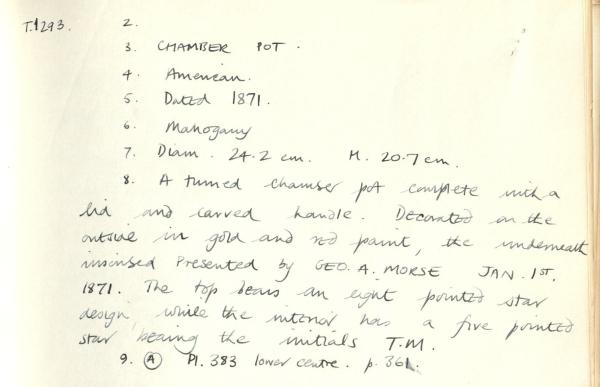 T.1293. 2.
3. CHAMBER POT.
4. American.
5. Dated 1871.
6. Mahogany
7. Diam. 24.2 cm. H. 20.7 cm.
8. A turned chamber pot complete with a
lid and carved handle. Decorated on the
outside in gold and red paint, the underneath
inscribed Presented by GEO. A. MORSE JAN. 1ST.
1871. The top bears an eight pointed star
design, while the interior has a five pointed
star bearing the initials T.M.
9. A Pl. 383 lower centre. p. 361.